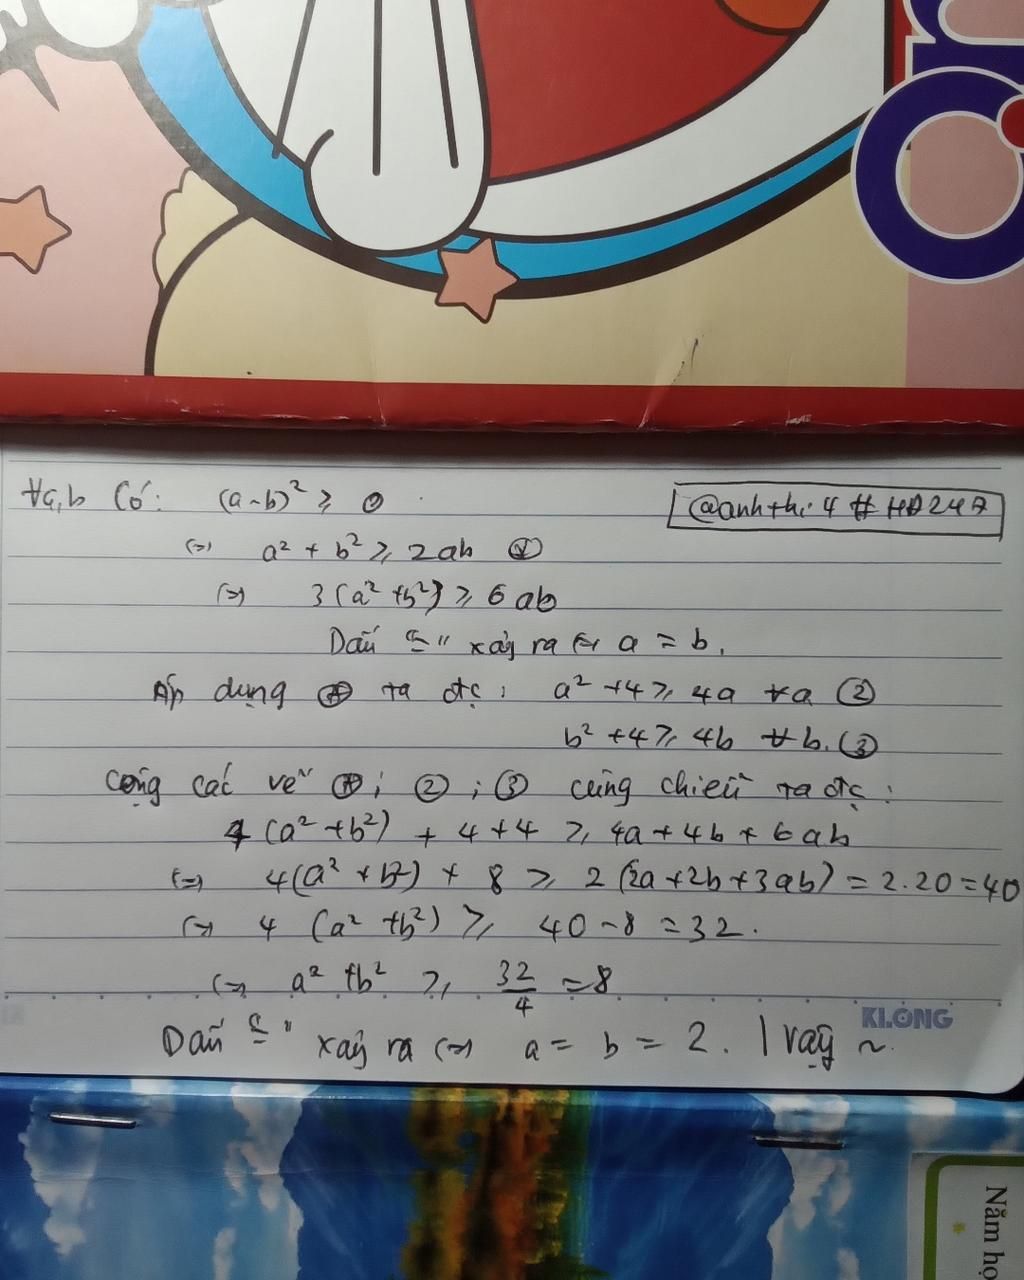 ∀a,b Có: (a-b)² ≥ 0
@anhthi.4 # HD247
(=) a² + b² ≥ 2ab ⊛
(=) 3(a² + b²) ≥ 6ab
Dấu "=" xảy ra (=) a = b.
Áp dụng ⊛ ta đc: a² + 4 ≥ 4a ∀a ②
b² + 4 ≥ 4b ∀b. ③
Cộng các vế ⊛; ②; ③ cùng chiều ta đc:
4(a² + b²) + 4 + 4 ≥ 4a + 4b + 6ab
(=) 4(a² + b²) + 8 ≥ 2(2a + 2b + 3ab) = 2.20 = 40
(=) 4(a² + b²) ≥ 40 - 8 = 32.
(=) a² + b² ≥ 32/4 = 8
KLONG
Dấu "=" xảy ra (=) a = b = 2. | Vậy ~.
Năm họ